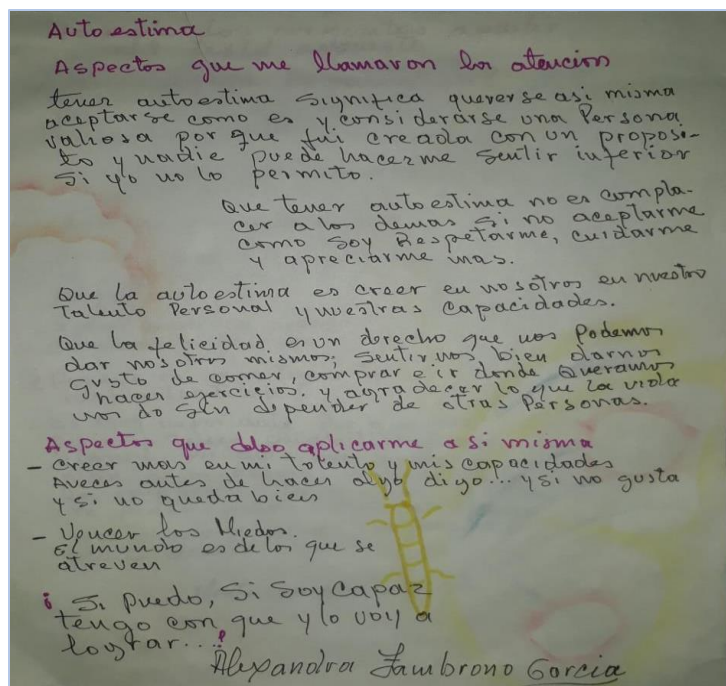 Autoestima
Aspectos que me llamaron la atencion
tener autoestima significa quererse asi misma
aceptarse como es y considerarse una Persona
valiosa por que fui creada con un proposi-
to y nadie puede hacerme sentir inferior
si yo no lo permito.
Que tener autoestima no es compla-
cer a los demas si no aceptarme
como soy Respetarme, cuidarme
y apreciarme mas.
Que la autoestima es creer en nosotros en nuestro
Talento Personal y nuestras capacidades.
Que la felicidad es un derecho que nos Podemos
dar nosotros mismos; sentirnos bien darnos
gusto de comer, comprar e ir donde Queramos
hacer ejercicios. y agradecer lo que la vida
nos da sin depender de otras Personas.
Aspectos que debo aplicarme a si misma
- creer mas en mi Talento y mis capacidades
Aveces antes de hacer algo digo... y si no gusta
y si no queda bien
- Vencer los Miedos.
El mundo es de los que se
atreven
¡ Si puedo, Si Soy Capaz
tengo con que y lo voy a
lograr...!
Alexandra Zambrano Garcia